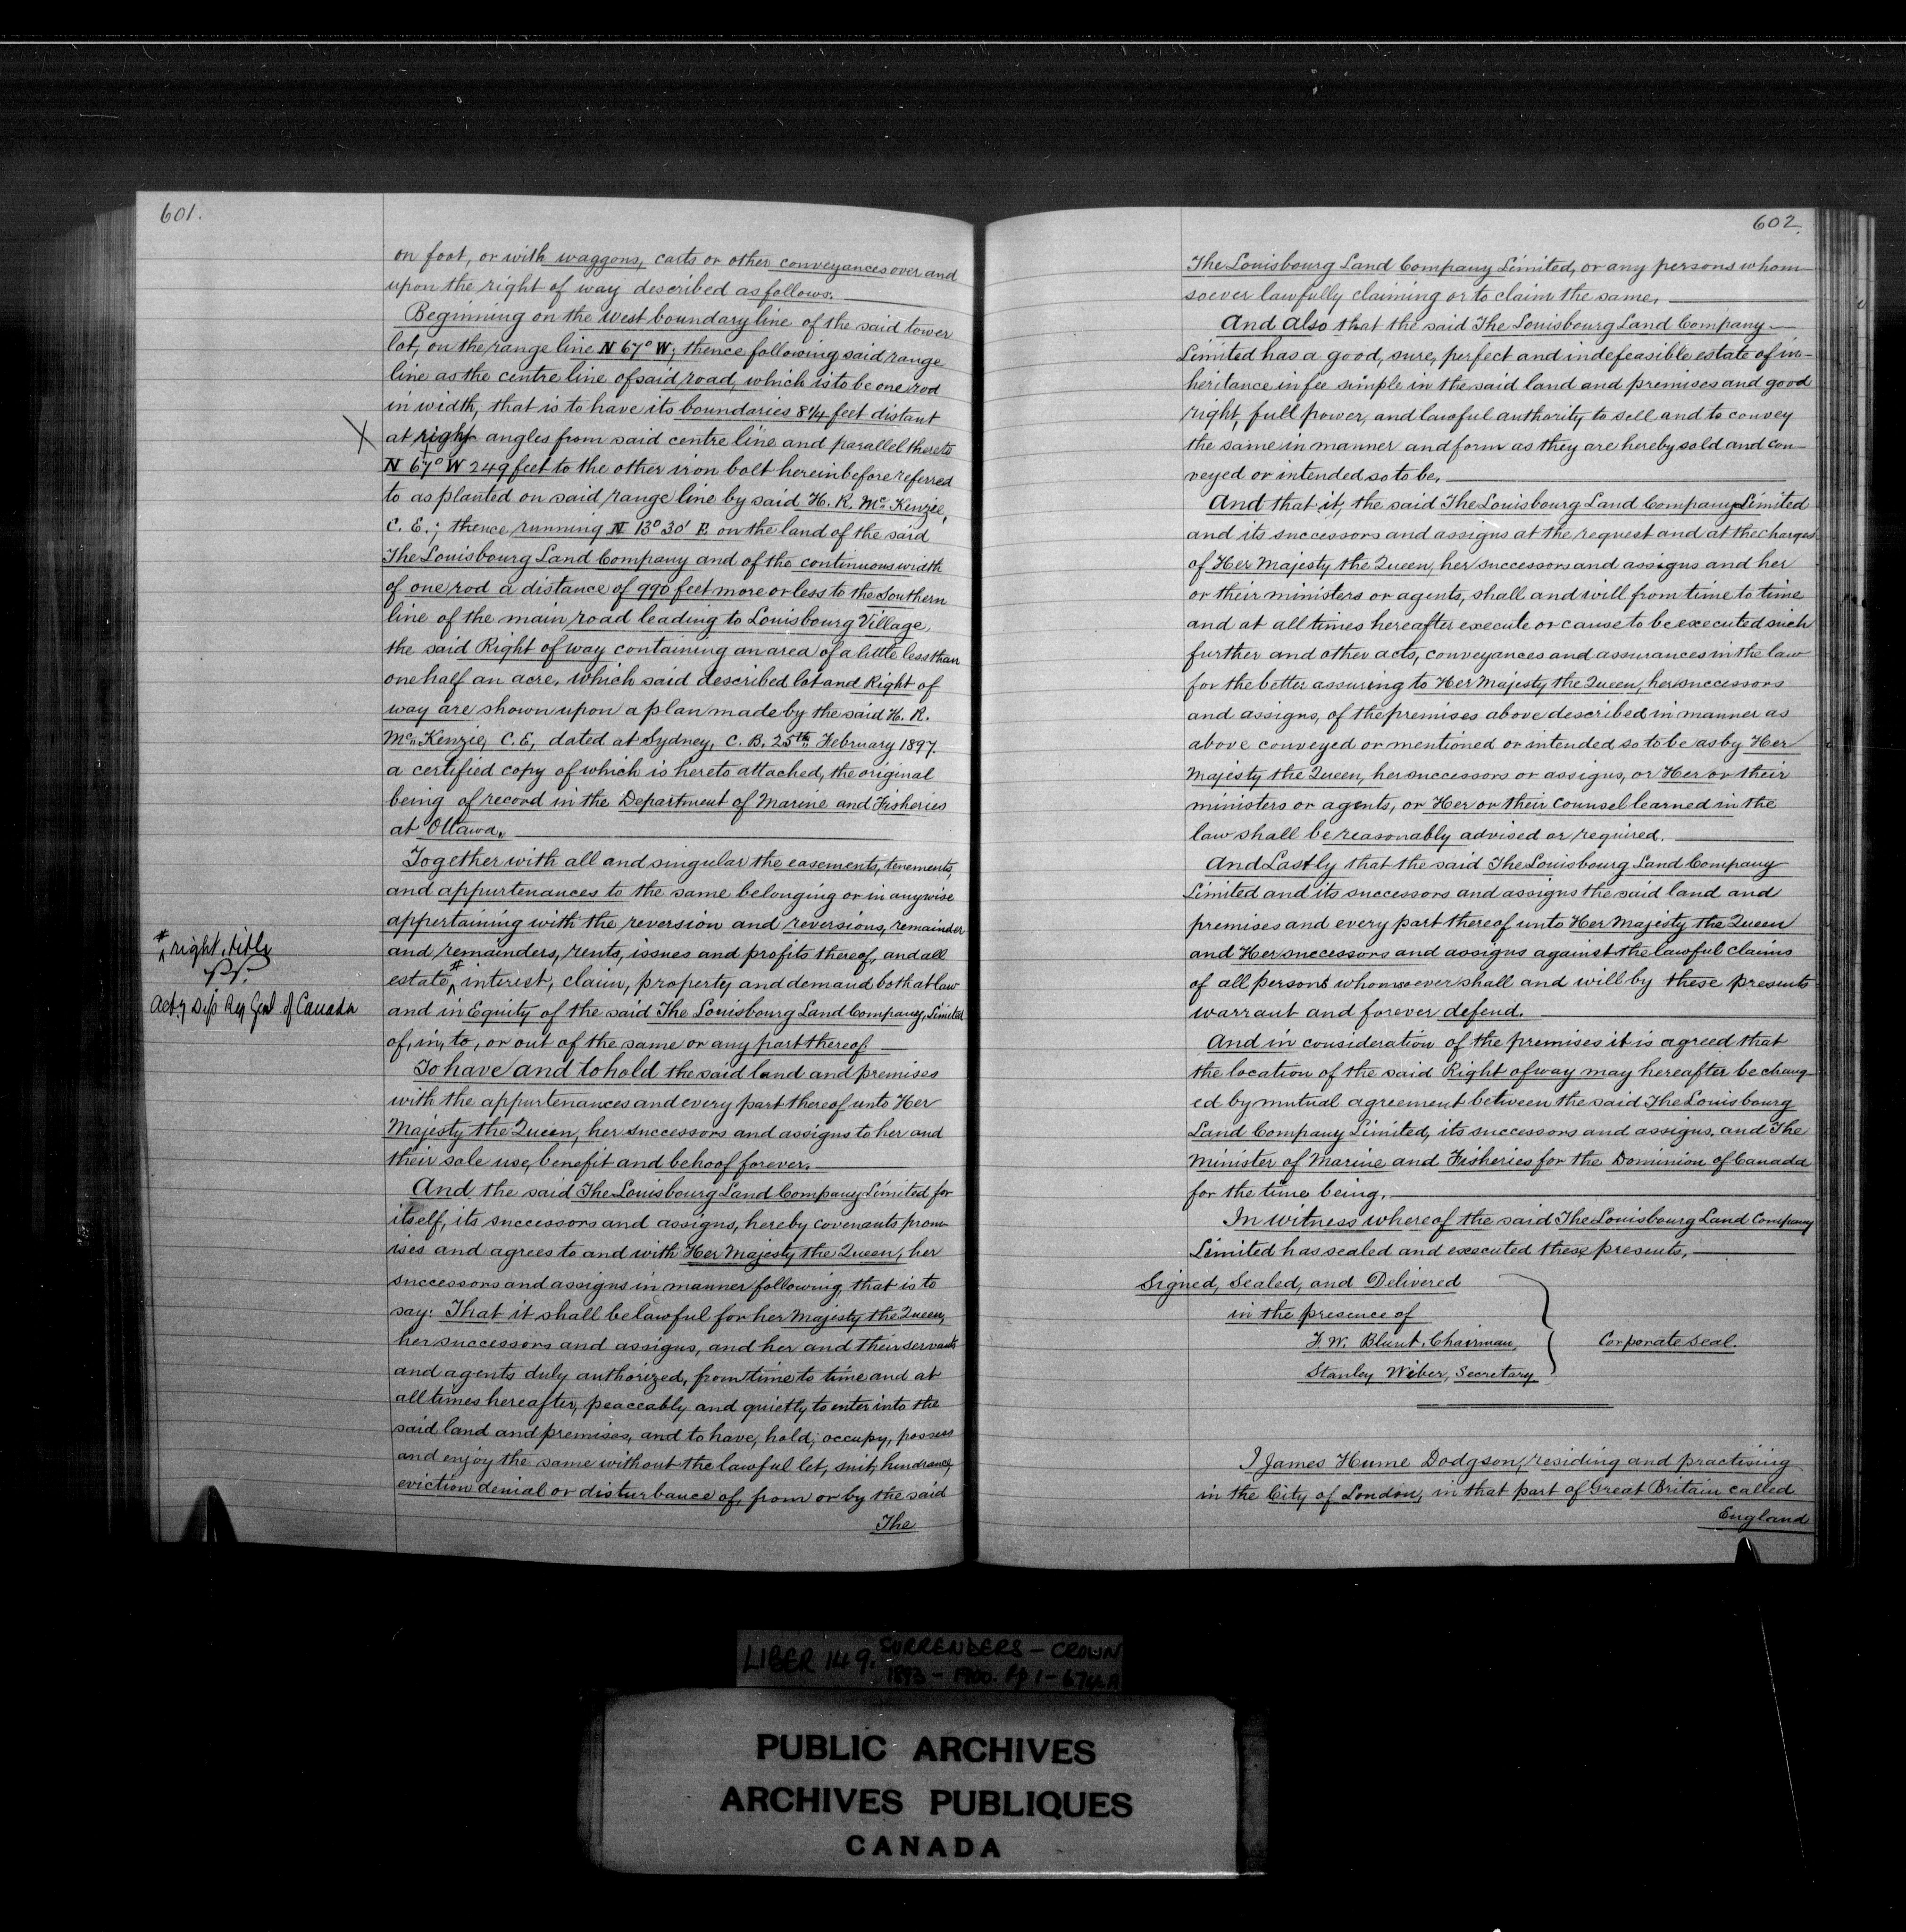 601.
on foot, or with waggons, carts or other conveyances over and
upon the right of way described as follows:
Beginning on the West boundary line of the said tower
lot, on the range line N 67° W; thence following said range
line as the centre line of said road, which is to be one rod
in width, that is to have its boundaries 8 1/4 feet distant
X at right angles from said centre line and parallel thereto
N 67° W 249 feet to the other iron bolt hereinbefore referred
to as planted on said range line by said H. R. Mc Kenzie,
C. E.; thence running N 13° 30' E on the land of the said
The Louisbourg Land Company and of the continuous width
of one rod a distance of 990 feet more or less to the Southern
line of the main road leading to Louisbourg Village,
the said Right of way containing an area of a little less than
one half an acre, which said described lot and Right of
way are shown upon a plan made by the said H. R.
Mc Kenzie, C. E, dated at Sydney, C. B. 25th February 1897.
a certified copy of which is hereto attached, the original
being of record in the Department of Marine and Fisheries
at Ottawa.
Together with all and singular the easements, tenements,
and appurtenances to the same belonging or in anywise
appertaining with the reversion and reversions, remainder
and remainders, rents, issues and profits thereof, and all
estate, # interest, claim, property and demand both at law
and in Equity of the said The Louisbourg Land Company, Limited
of, in, to, or out of the same or any part thereof.
# right, title
Act.g Dep Reg Genl of Canada
To have and to hold the said land and premises
with the appurtenances and every part thereof unto Her
Majesty the Queen, her successors and assigns to her and
their sole use, benefit and behoof forever.
And the said The Louisbourg Land Company Limited for
itself, its successors and assigns, hereby covenants prom-
ises and agrees to and with Her Majesty the Queen, her
successors and assigns in manner following, that is to
say: That it shall be lawful for her Majesty the Queen,
her successors and assigns, and her and their servants
and agents duly authorized, from time to time and at
all times hereafter, peaceably and quietly to enter into the
said land and premises, and to have, hold, occupy, possess
and enjoy the same without the lawful let, suit, hindrance,
eviction denial or disturbance of, from or by the said
The
602.
The Louisbourg Land Company Limited, or any persons whom-
soever lawfully claiming or to claim the same.
And also that the said The Louisbourg Land Company
Limited has a good, sure, perfect and indefeasible estate of in-
heritance in fee simple in the said land and premises and good
right, full power, and lawful authority to sell and to convey
the same in manner and form as they are hereby sold and con-
veyed or intended so to be.
And that it, the said The Louisbourg Land Company Limited
and its successors and assigns at the request and at the charges
of Her Majesty the Queen, her successors and assigns and her
or their ministers or agents, shall and will from time to time
and at all times hereafter execute or cause to be executed such
further and other acts, conveyances and assurances in the law
for the better assuring to Her Majesty the Queen, her successors
and assigns, of the premises above described in manner as
above conveyed or mentioned or intended so to be as by Her
Majesty the Queen, her successors or assigns, or Her or their
ministers or agents, or Her or their counsel learned in the
law shall be reasonably advised or required.
And Lastly that the said The Louisbourg Land Company
Limited and its successors and assigns the said land and
premises and every part thereof unto Her Majesty the Queen
and Her successors and assigns against the lawful claims
of all persons whomsoever shall and will by these presents
warrant and forever defend.
And in consideration of the premises it is agreed that
the location of the said Right of way may hereafter be chang-
ed by mutual agreement between the said The Louisbourg
Land Company Limited, its successors and assigns, and The
Minister of Marine and Fisheries for the Dominion of Canada
for the time being.
In witness whereof the said The Louisbourg Land Company
Limited has sealed and executed these presents.
Signed, Sealed, and Delivered
in the presence of
F. W. Blunt, Chairman,
Corporate seal.
Stanley Wiber, Secretary
I James Hume Dodgson, residing and practising
in the City of London, in that part of Great Britain called
England
LIBER 149. SURRENDERS - CROWN
1893 - 1900. Pp 1 - 674-A
PUBLIC ARCHIVES
ARCHIVES PUBLIQUES
CANADA